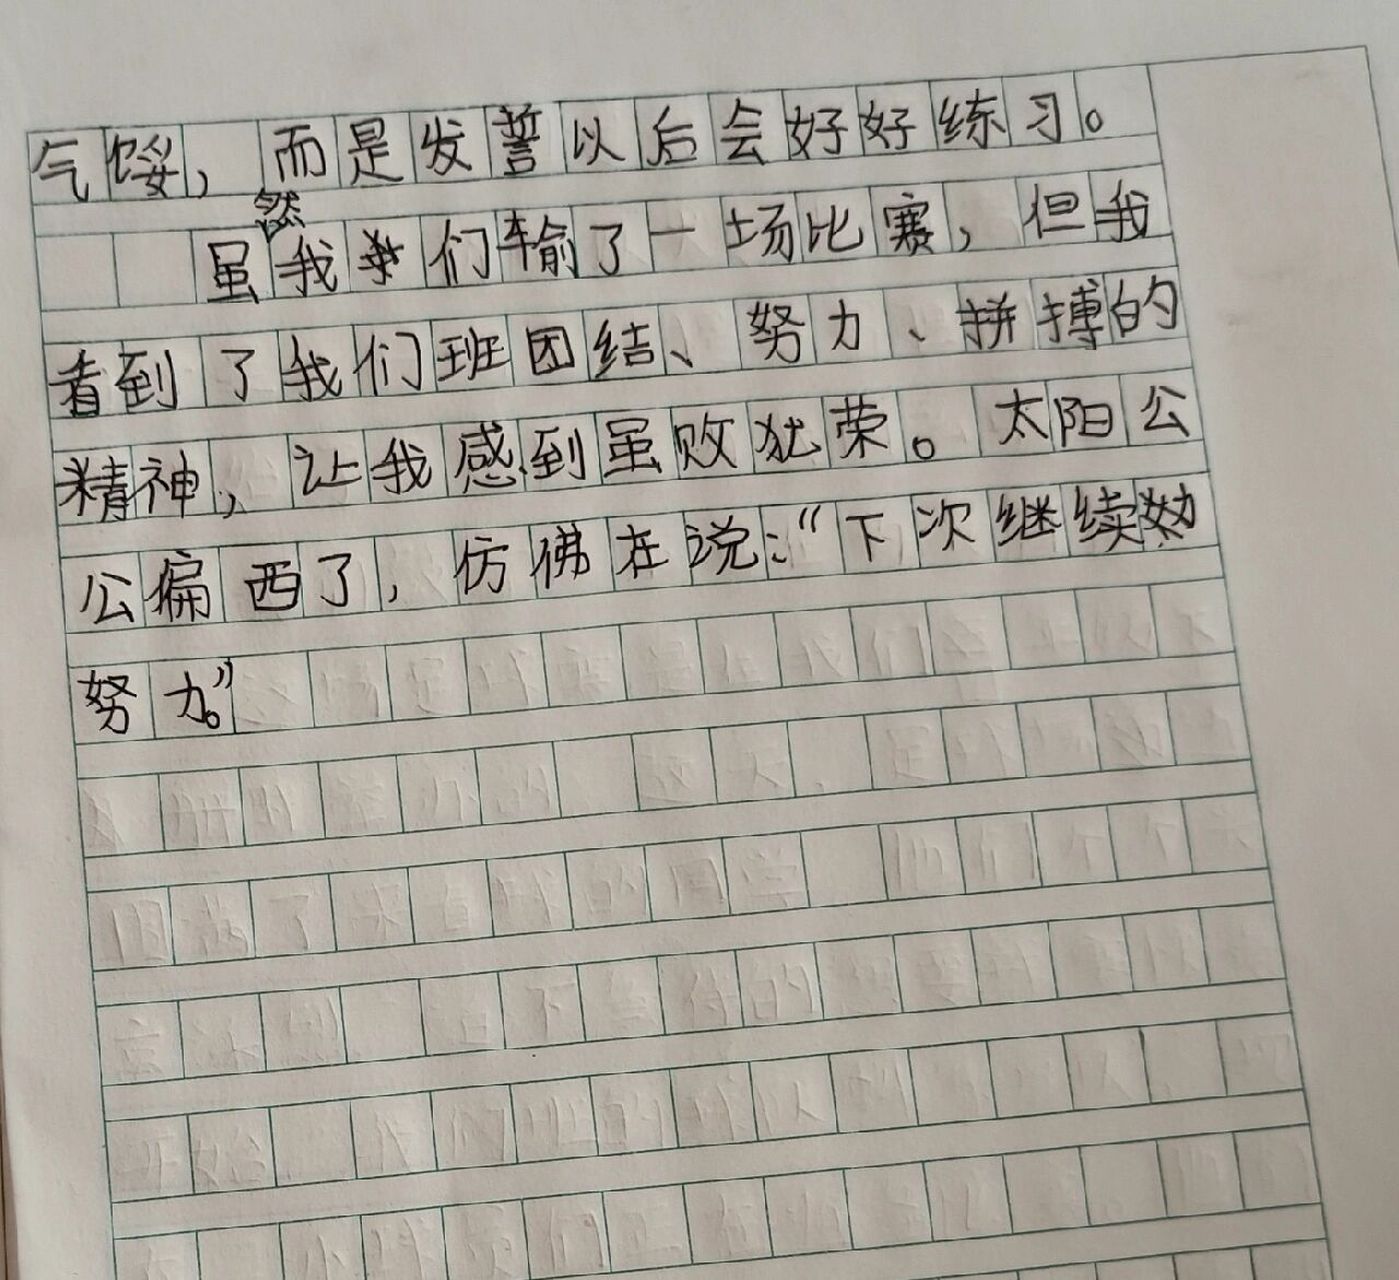 气馁，而是发誓以后会好好练习。
虽然我们输了一场比赛，但我
看到了我们班团结、努力、拼搏的
精神，让我感到虽败犹荣。太阳公
公偏西了，仿佛在说：“下次继续
努力。”